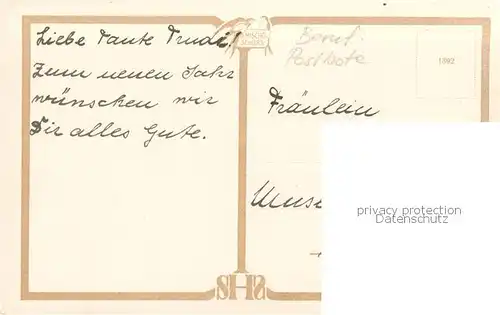 Liebe Tante Trudi!
Zum neuen Jahr
wünschen wir
Dir alles Gute.
Beruf:
Postbote
1892
Fräulein
privacy protection
Datenschutz
SHS